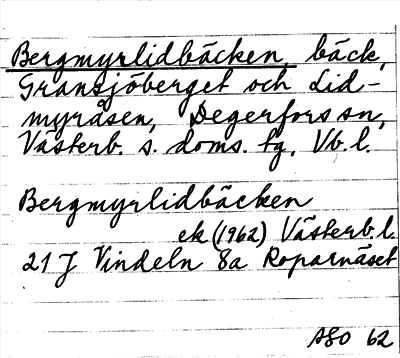 Bergmyrlidbäcken, bäck,
Gransjöberget och Lid-
myråsen, Degerfors sn,
Västerb. s. doms. tg, Vb. l.
Bergmyrlidbäcken
ek (1962) Västerb. l.
21 J Vindeln 8a Roparnäset
ASO 62